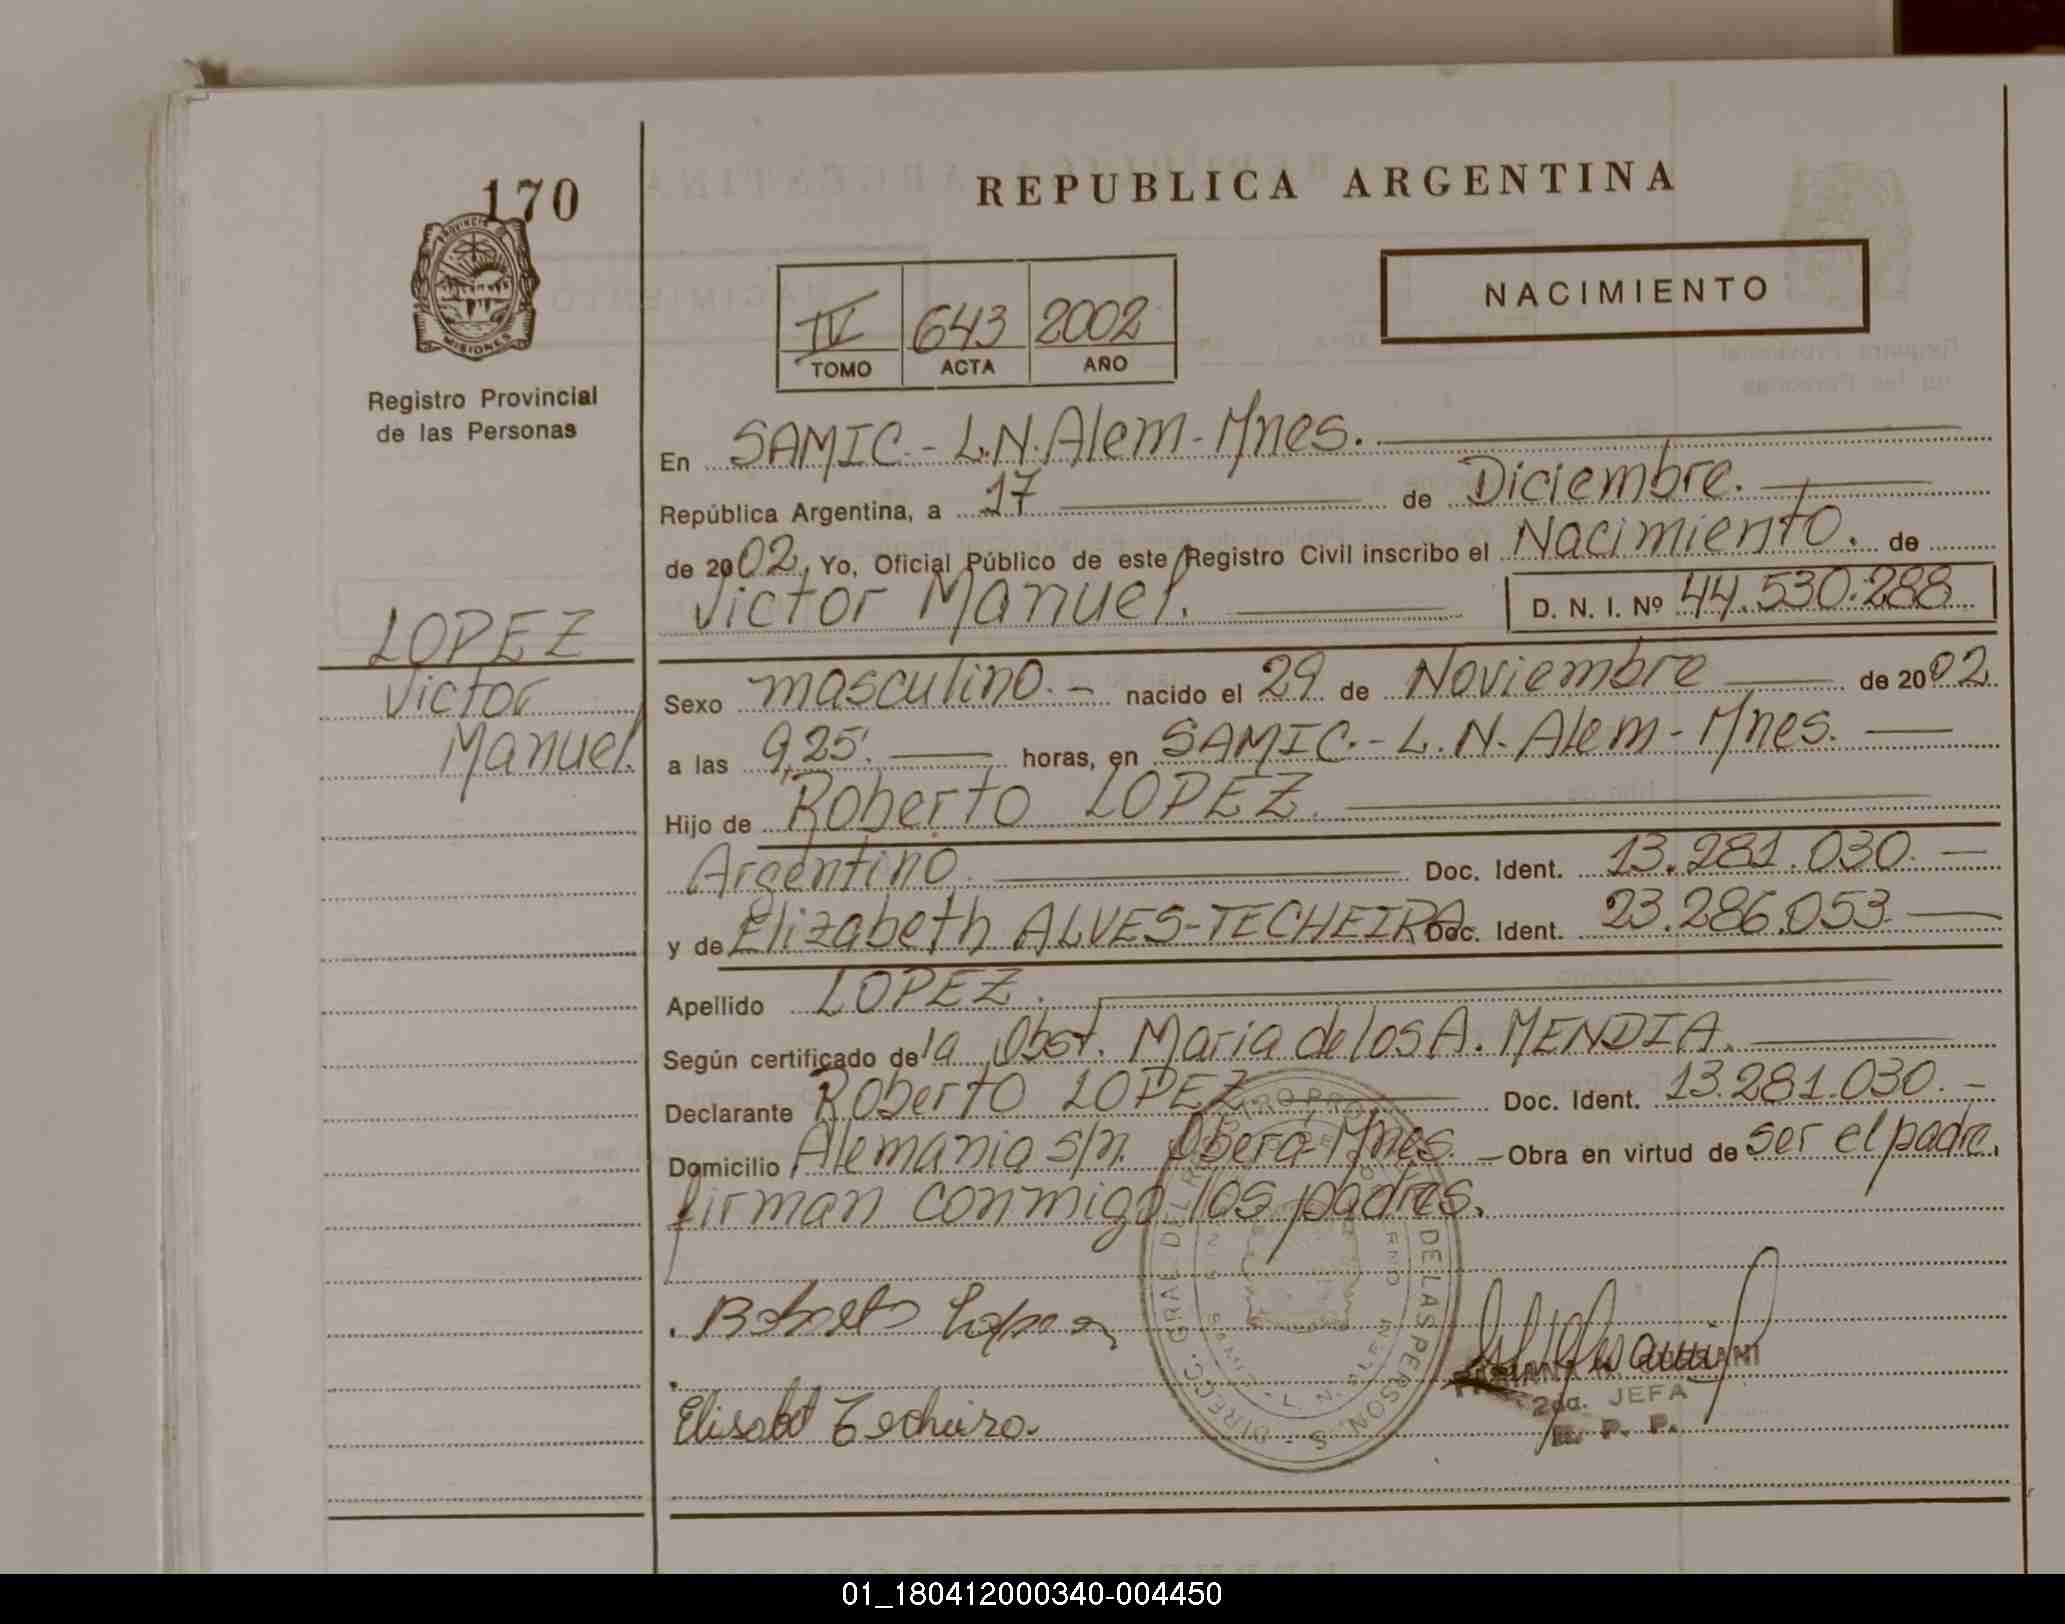 170
REPUBLICA ARGENTINA
PROVINCIA DE
MISIONES
Registro Provincial
de las Personas
NACIMIENTO
IV 643 2002
TOMO ACTA AÑO
En SAMIC.- L.N.Alem-Mnes.
República Argentina, a 17 de Diciembre.
de 2002, Yo, Oficial Público de este Registro Civil inscribo el Nacimiento. de
Victor Manuel. D. N. I. Nº 44.530.288
LOPEZ
Victor
Manuel.
Sexo masculino.- nacido el 29 de Noviembre de 2002
a las 9,25'. horas, en SAMIC.- L.N.Alem-Mnes.
Hijo de Roberto LOPEZ.
Argentino. Doc. Ident. 13.281.030.-
y de Elizabeth ALVES-TECHEIRA Doc. Ident. 23.286.053.-
Apellido LOPEZ.
Según certificado de la Obst. Maria de los A. MENDIA.
Declarante Roberto LOPEZ Doc. Ident. 13.281.030.-
Domicilio Alemania s/n. Obera-Mnes. - Obra en virtud de ser el padre,
firman conmigo los padres.
Roberto Lopez
Elisabet Techeira.
2da. JEFA
R. P. P.
DIRECC. GRAL DEL REGISTRO PROV. DE LAS PERSONAS
01_180412000340-004450